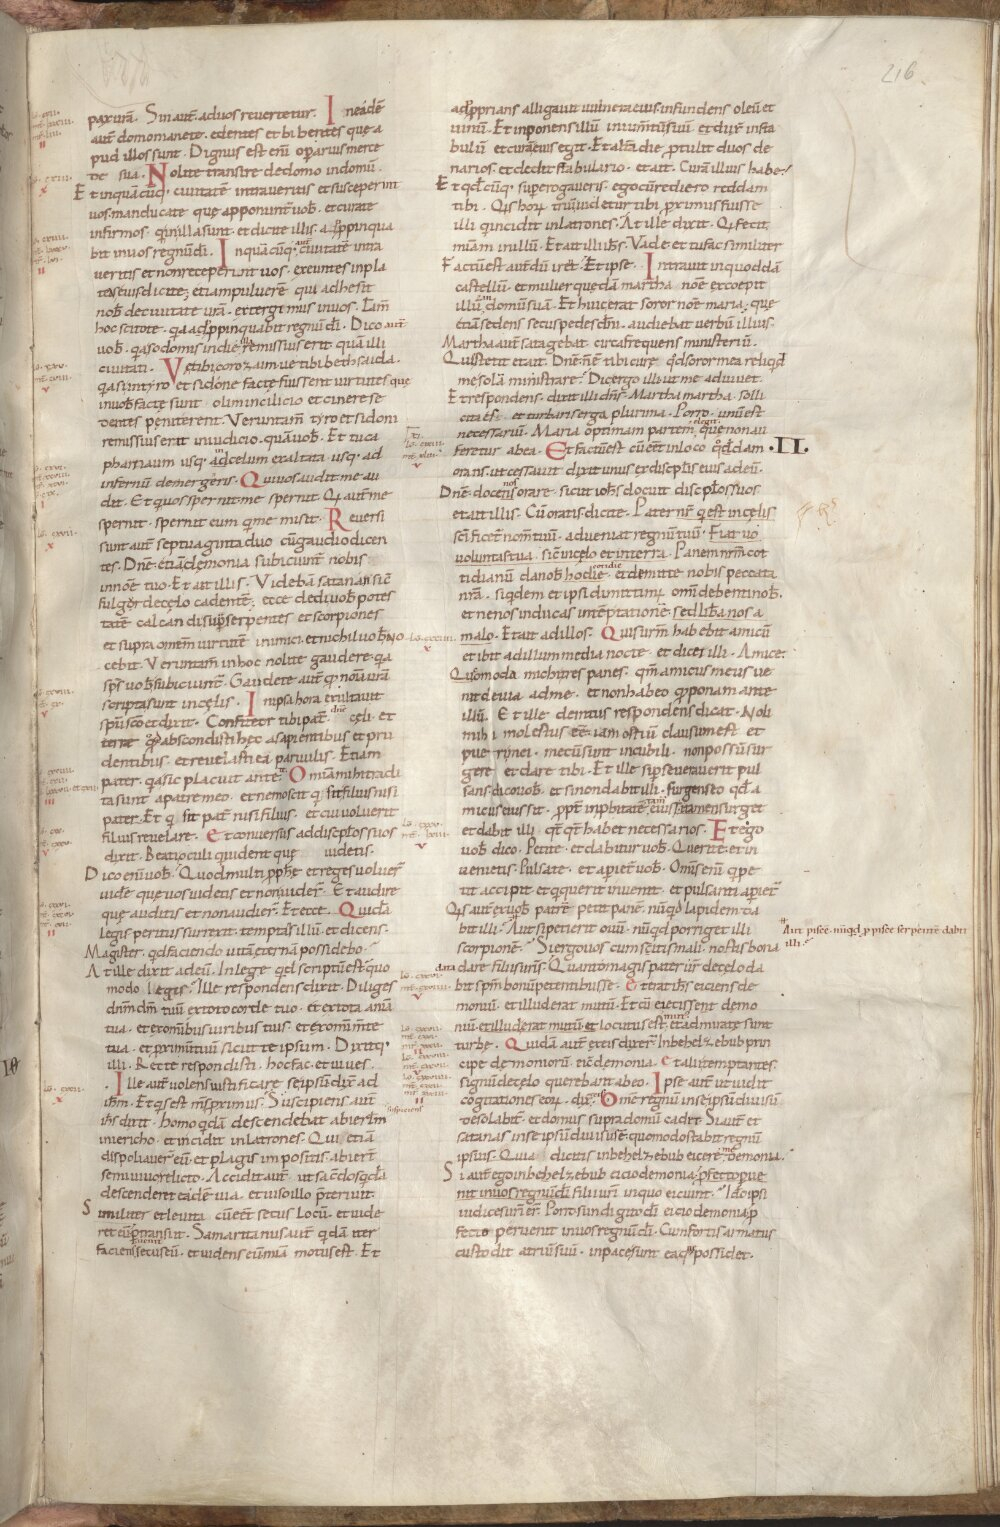 216
pax vr̄a. Sin aut̄ ad uos reuertetur. In eadē
aut̄ domo manete. edentes et bibentes que a
pud illos sunt. Dignus est eni operarius merce
de sua. Nolite transire de domo in domū.
Et in quācūq. ciuitatē intraueritis et susceperint
uos. manducate que apponunt̄ uob̄. et curate
infirmos. qui in illa sunt. et dicite illis. appinqua
bit in uos regnū dī. In quācūq. aut̄ ciuitatē intra
ueritis et non receperint uos. exeuntes in pla
teas eius dicite; etiam puluerē qui adhesit
nob̄ de ciuitate ur̄a. extergimus in uos. Tam̄
hoc scitote. qa adp̄pinquabit regnū dī. Dico aut̄
uob̄. qa sodomis in die illa remissius erit quā illi
ciuitati. Ve tibi corozaim ue tibi bethsaida.
qa si in tyro et sidone facte fuissent uirtutes que
in uob̄ facte sunt olim in cilicio et cinere se
dentes peniterent. Veruntam̄ tyro et sidoni
remissius erit in iudicio. quā uob̄. Et tu ca
pharnaum usq. ad celum exaltata usq. ad
infernū demergeris. Qui uos audit me au
dit. Et qui uos spernit me spernit. Qi aut̄ me
spernit. spernit eum qi me misit. Reuersi
sunt aut̄ septuaginta duo cū gaudio dicen
tes. Dn̄e. etiā demonia subiciunt̄ nobis
in noīe tuo. Et ait illis. Videbā satanan sic̄
fulgor de celo cadentē. ecce dedi uob̄ potes
tatē calcandi sup̄ serpentes et scorpiones
et supra omēm uirtutē inimici. et nichil uob̄ no
cebit. Veruntam̄ in hoc nolite gaudere. qa
sp̄s uob̄ subiciunt̄. Gaudete aut̄ q noīa ur̄a
scripta sunt in celis. In ipsa hora exultauit
spū sco et dixit. Confiteor tibi pat̄ dn̄e celi. et
terre qd abscondisti hec a sapientibus et pru
dentibus. et reuelasti ea paruulis. Etiam
pater. qa sic placuit ante te. Omīa mihi tradi
ta sunt a patre meo. et nemo scit qi sit filius nisi
pater. Et qi sit pat̄ nisi filius. et cui uoluerit
filius reuelare. Et conuersus ad discip̄los suos
dixit. Beati oculi qui uident que uidetis.
Dico eni uob̄. Quod multi pp̄he et reges uoluer̄
uidere que uos uidetis et non uider̄. Et audire
que auditis et non audier̄. Et ecce. Quidā
legis peritus surrexit. temptās illū. et dicens.
Magister. qd faciendo uitā eternā possidebo?
At ille dixit ad eū. In lege qd scriptū est? quo
modo legis? Ille respondens dixit. Diliges
dn̄m dm̄ tuū ex toto corde tuo. et ex tota anima
tua. et ex omibus uiribus tuis. et ex omi mente
tua. et proximū tuū sicut te ipsum. Dixitq.
illi. Recte respondisti. hoc fac. et uiues.
Ille aut̄ uolens iustificare se ipsū dix̄ ad
ihm̄. Et qis est ms̄ proximus? Suscipiens aut̄
ihs̄ dixit. homo qdā descendebat ab ierlm̄
in iericho. et incidit in latrones. Qui etiā
dispoliauer̄ eū. et plagis impositis abier̄t
semiuiuo relicto. Accidit aut̄ ut sacdos qdā
descenderet eadē uia. et uiso illo pteriuit.
Similiter et leuita cū eēt secus locū. et uide
ret eū ptransiit. Samaritanus aut̄ qdā iter
faciens secus eū. et uidens eū mīa motus est. Et
adp̄prians alligauit uulnera eius. infundens oleū et
uinū. Et inponens illū in iumtū suū. et dux̄ in sta
bulū et curā eius egit. Et alta die ptulit duos de
narios. et dedit stabulario. et ait. Curā illius habe.
Et qd cūq. supererogaueris. ego cū rediero reddam
tibi. Qis hoꝝ triū uidetur tibi proximus fuisse
illi qi incidit in latrones? At ille dixit. Qi fecit
mīam in illū. Et ait illi ihs̄. Vade et tu fac similiter
Factū est aut̄ dū irēt. Et ipse. Intrauit in quoddā
castellū. et mulier quedā martha noīe excoepit
illū in domū suā. Et huic erat soror noīe maria. que
etiā sedens secus pedes dn̄i. audiebat uerbū illius.
Martha aut̄ satagebat circa frequens ministeriū.
Que stetit et ait. Dn̄e. nē tibi cure. qd soror mea reliqit
me solā ministrare? Dic ergo illi ut me adiuuet.
Et respondens. dixit illi dn̄s. Martha martha. solli
cita es. et turbaris erga plurima. Porro unū est
necessariū. Maria optimam partem elegit que non au
feretur ab ea. Et factū est cū eēt in loco qdam .II.
orans. ut cessauit dixit unus ex discip̄lis eius ad eū.
Dn̄e. doce nos orare. sicut iohs̄ docuit discip̄los suos
et ait illis. Cū oratis. dicite. Pater nr̄ qi est in celis
sc̄ificet̄ nom̄ tuū. adueniat regnū tuū. Fiat uo
voluntas tua. sic̄ in celo et in terra. Panem nr̄m cot
tidianū da nob̄ hodie cotidie. et dimitte nobis peccata
nr̄a. siqdem et ipsi dimittim. omi debenti nob̄.
et ne nos inducas in teptationē. sed lib̄a nos a
malo. Et ait ad illos. Quis ur̄m habebit amicū
et ibit ad illum media nocte et dicet illi. Amice.
Quomoda michi tres panes. qm̄ amicus meus ue
nit de uia ad me. et non habeo qd ponam ante
illū. Et ille deintus respondens dicat. Noli
mihi molestus eē. iam ostiū clausum est et
pueri mei. mecū sunt in cubili. non possū sur
gere et dare tibi. Et ille si perseuerauerit pul
sans. dico uob̄. et si non dabit illi. surgens eo qd a
micus eius sit. ppt̄ inpbitatē tam eius surget
et dabit illi. qt̄qt̄ habet necessarios. Et ego
uob̄ dico. Petite. et dabitur uob̄. Querite. et in
uenietis. Pulsate. et apiet̄ uob̄. Omīs eni qi pe
tit accipit. et qi querit inuenit. et pulsanti apiet̄
Qis aut̄ ex uob̄ patrē petit panē. nūqd lapidem da
bit illi? Aut si petierit ouū. nūqd porriget illi
scorpionē? Si ergo uos cum sitis mali. nostis bona
data dare filiis ur̄is. Quanto magis pater ur̄ de celo da
bit spm̄ bonū petentibus se. Et erat ihs̄ eiciens de
moniū. et illud erat mutū. Et cū eiecissent demo
niū. et illud erat mutū et locutus est mut̄. et admirate sunt
turbe. Quidā aut̄ ex eis dixer̄. In behelzebub prin
cipe demonioꝝ eicit demonia. et alii temptantes
signū de celo querebant ab eo. Ipse aut̄ ut uidit
cogitationes eoꝝ. dix̄ eis. Ome regnū in se ipsū diuisū
desolabit̄. et domus supra domū cadet. Si aut̄ et
satanas in se ipsū diuisus ē. quomodo stabit regnū
ipsius. Quia dicitis in behelzebub eicere me demonia.
Si aut̄ ego in behelzebub eicio demonia. pfecto pue
nit in uos regnū dī. filii uri in quo eiciunt? Ido ipsi
iudices uri er̄. Porro si in digito dī eicio demonia p
fecto peruenit in uos regnū dī. Cum fortis armatus
custodit atriū suū. in pace sunt ea que possidet.
Aut piscē. nūqd p pisce serpentē dabit
illi?
suspiciens